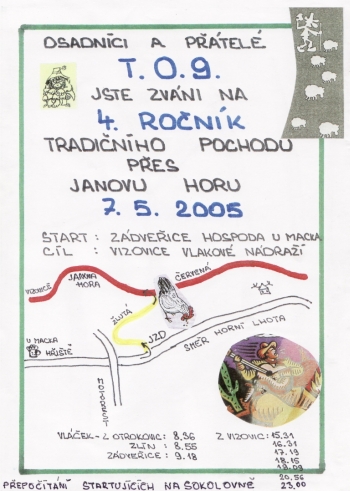 OSADNÍCI A PŘÁTELÉ
T.O.9.
JSTE ZVÁNI NA
4. ROČNÍK
TRADIČNÍHO POCHODU
PŘES
JANOVU HORU
7.5.2005
START : ZÁDVEŘICE HOSPODA U MACKA
CÍL : VIZOVICE VLAKOVÉ NÁDRAŽÍ
VIZOVICE
JANOVA HORA
ČERVENÁ
ŽLUTÁ
U MACKA
HŘIŠTĚ
JZD
SMĚR HORNÍ LHOTA
MOTOREST
VLÁČEK - Z OTROKOVIC : 8,36 Z VIZOVIC : 15,31
ZLÍN : 8.55 16,31
ZÁDVEŘICE : 9.18 17.19
18.15
19.09
20,56
PŘEPOČÍTÁNÍ STARTUJÍCÍCH NA SOKOLOVNĚ 23,00